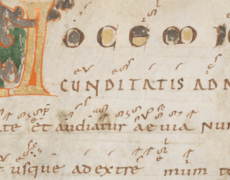 VOCEM
CUNDITATIS ADN
ate et audiatur aeuia Nun
usque ad extre mum